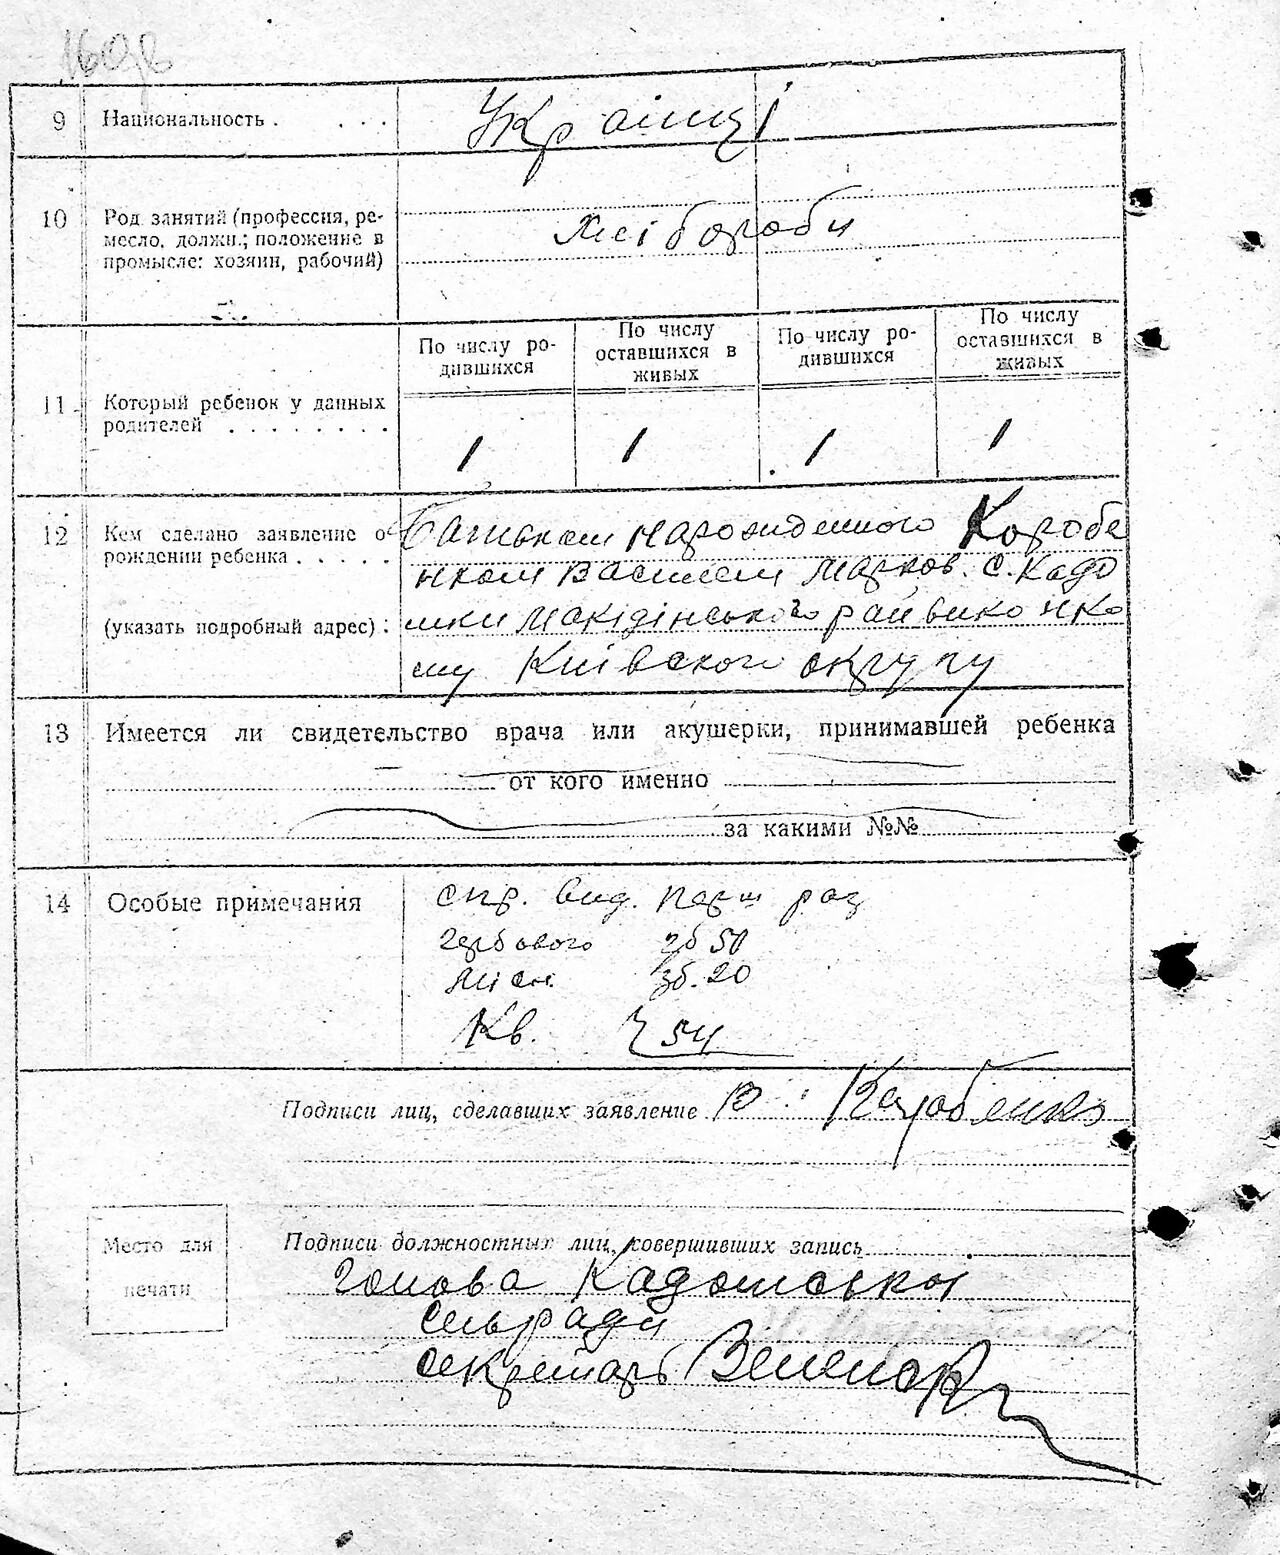 9 Национальность . . . . Українці
10 Род занятий (профессия, ре-
месло, должн.; положение в
промысле: хозяин, рабочий)
хлібороби
По числу ро-
дившихся
По числу
оставшихся в
живых
По числу ро-
дившихся
По числу
оставшихся в
живых
11 Который ребенок у данных
родителей . . . . . . . .
1 1 1 1
12 Кем сделано заявление о
рождении ребенка . . . . .
(указать подробный адрес) :
Батьком народженного Коробе
нком Василем Марков. с. Кадо
мки Макідінського райвиконко
му Київского округу
13 Имеется ли свидетельство врача или акушерки, принимавшей ребенка
от кого именно
за какими №№
14 Особые примечания
спр. вид. перш раз
гербового 2б 50
3б. 20
Кв. 54
Подписи лиц, сделавших заявление Коробенко
Место для
печати
Подписи должностных лиц, совершивших запись
голова Кадомської
сельради
секретарь